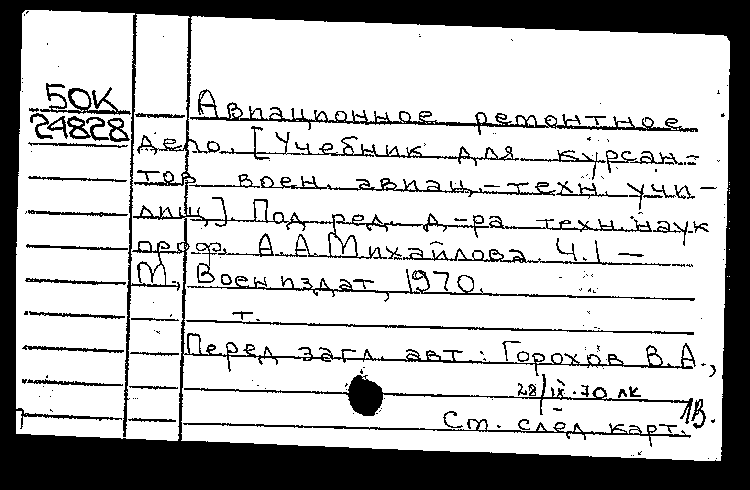 50К
24828
Авиационное ремонтное
дело. [Учебник для курсан-
тов воен. авиац.-техн. учи-
лищ]. Под ред. д-ра техн. наук
проф. А.А. Михайлова. Ч.1 –
М., Воениздат, 1970.
т.
Перед загл. авт.: Горохов В.А.,
28/IX-70 лк
1В.
См. след. карт.